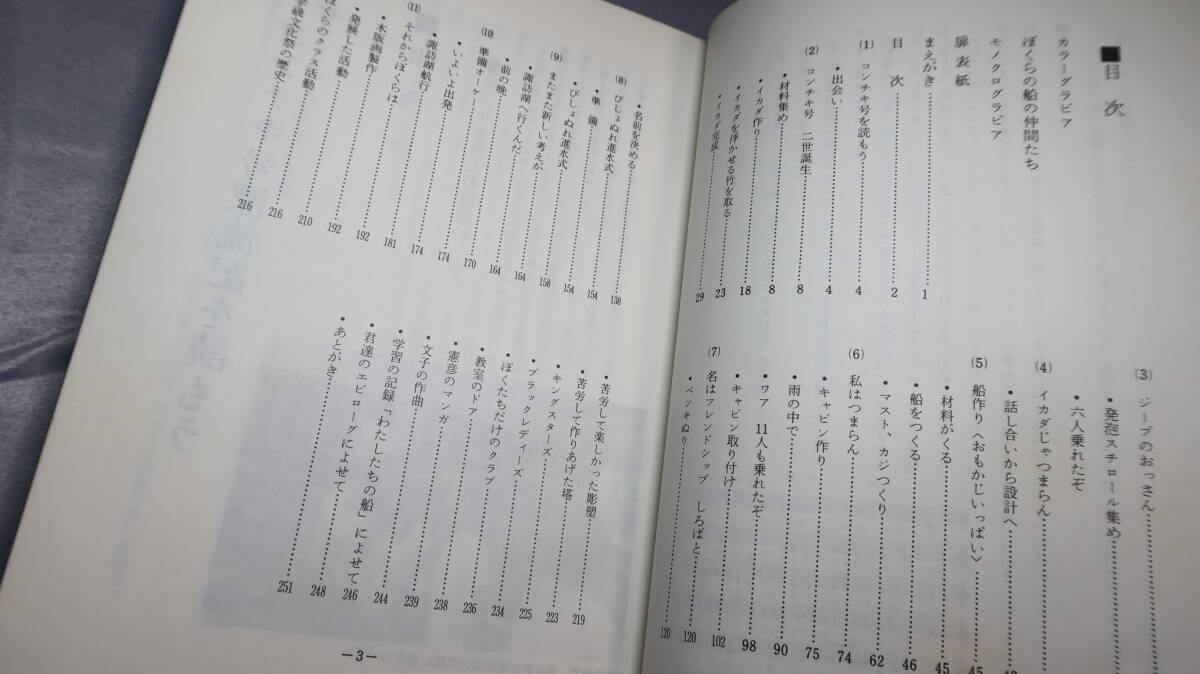 ■目 次
カラーグラビア
ぼくらの船の仲間たち
モノクログラビア
扉 表 紙
まえがき……1
目 次……2
(1) コンチキ号を読もう……4
・出会い……4
(2) コンチキ号 二世誕生……8
・材料集め……8
・イカダ作り……18
・イカダを浮かせる竹を取る……23
・イカダ完成……29
(3) ジープのおっさん……
・発泡スチロール集め……
・六人乗れたぞ……
(4) イカダじゃつまらん……
・話し合いから設計へ……
(5) 船作り〈おもかじいっぱい〉……45
・材料がくる……45
・船をつくる……46
・マスト、カジつくり……62
(6) 私はつまらん……74
・キャビン作り……75
・雨の中で……90
・ワア 11人も乗れたぞ……98
・キャビン取り付け……102
(7) 名はフレンドシップ しろばと……120
・ペンキぬり……120
・名前を決める……138
(8) びしょぬれ進水式……154
・準 備……154
・びしょぬれ進水式……154
(9) またまた新しい考えが……158
・諏訪湖へ行くんだ……164
・前の晩……164
(10) 準備オーケー……170
・いよいよ出発……174
・諏訪湖航行……174
(11) それからぼくらは……181
・木版画製作……192
・発展した活動……192
ぼくらのクラス活動……210
学級文化祭の歴史……216
216
・苦労して楽しかった彫塑……219
・苦労して作りあげた塔……223
・キングスターズ……225
・ブラックレディーズ……234
・ぼくたちだけのクラブ……236
・教室のドア……238
・憲彦のマンガ……239
・文子の作曲……244
・学習の記録「わたしたちの船」によせて……246
・君達のエピローグによせて……248
・あとがき……251
—3—